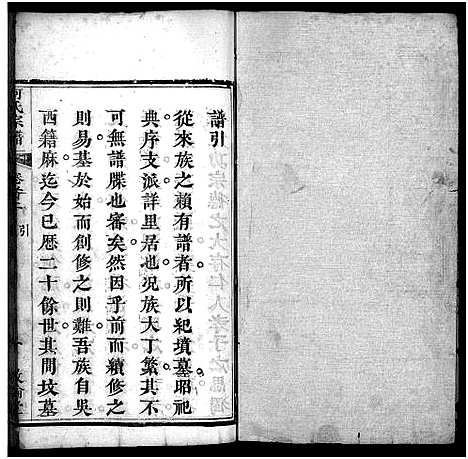 譜引
從來族之賴有譜者所以紀墳墓昭祀
典序支派詳里居也况族大丁繁其不
可無譜牒也審矣然因乎前而續修之
則易基於始而創修之則難吾族自吳
西籍麻迄今已歷二十餘世其間坟墓
氏宗譜 引